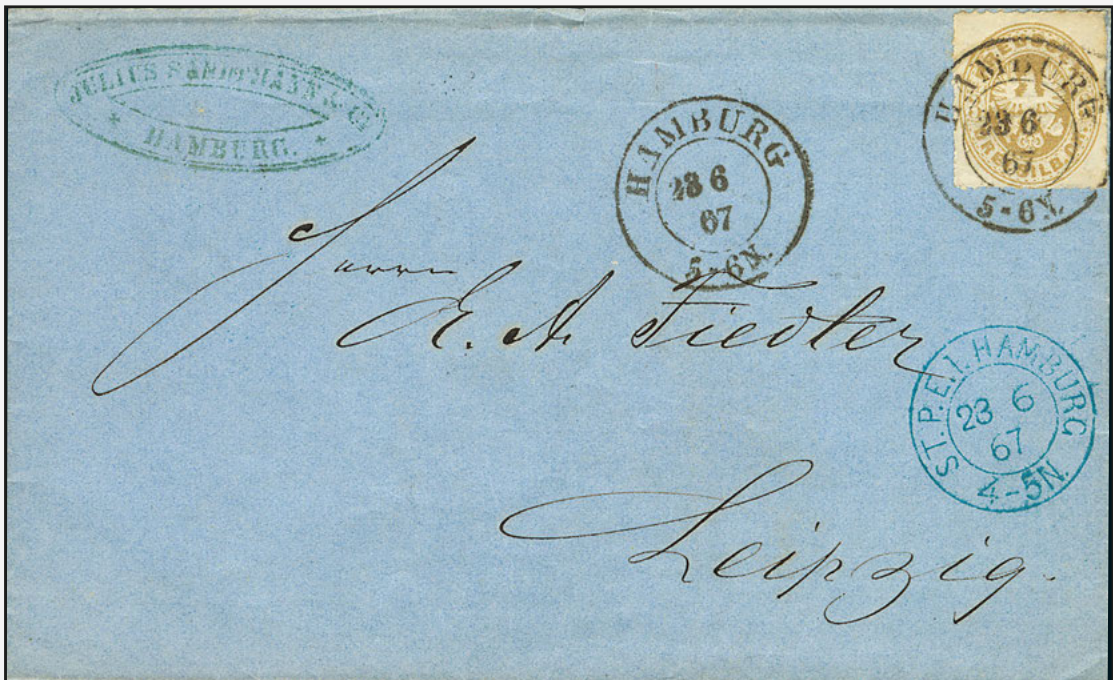 JULIUS & Co
HAMBURG.
HAMBURG
23 6
67
5-6N.
HAMBURG
23 6
67
5-6N.
Herrn
E. A. Fiedler
ST. P. E. I. HAMBURG
23 6
67
4-5N.
Leipzig.